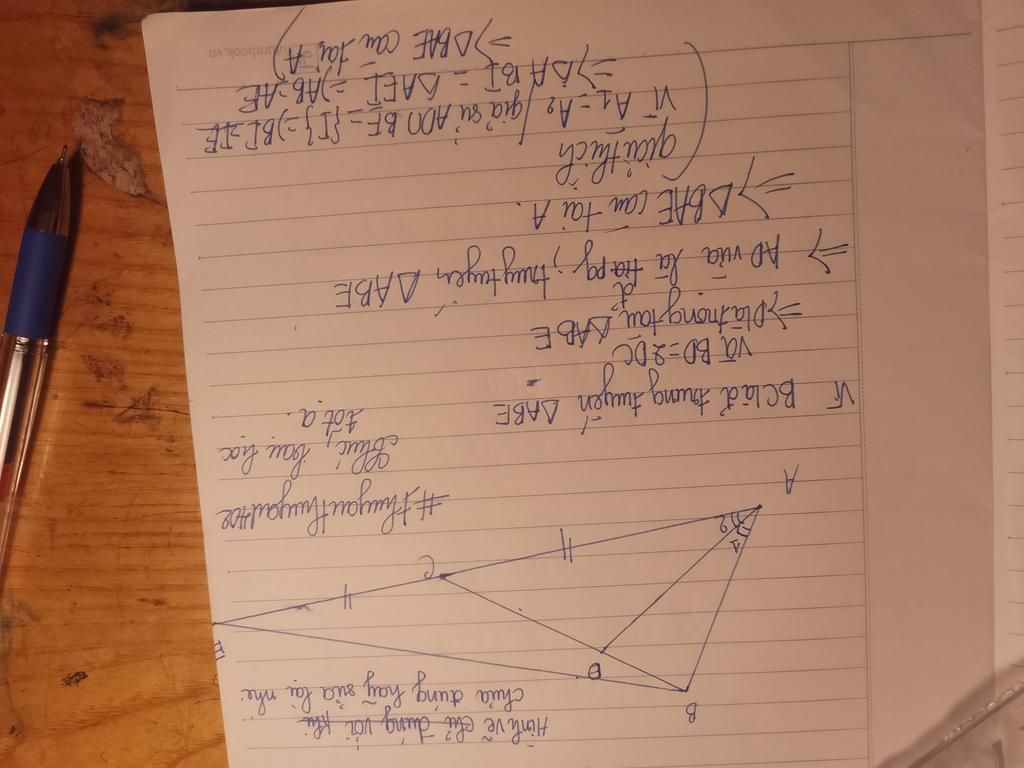 Hình vẽ chỉ đúng với khi
chưa đúng hãy sửa lại nhé.
B
D
E
C
1
2
A
#thuyanthuyanhoc
Chúc bạn học
tốt ạ.
Vì BC là đ trung tuyến ΔABE
và BD=2DC
=> D là trọng tâm ΔABE
=> AD vừa là tia pg, đ trung tuyến ΔABE
=> ΔBAE cân tại A.
(giải thích
Vì A1=A2 / giả sử AD∩BE={I}=>BI=IE
=> ΔABI=ΔAEI=>AB=AE
=> ΔBAE cân tại A)
turebook.vn